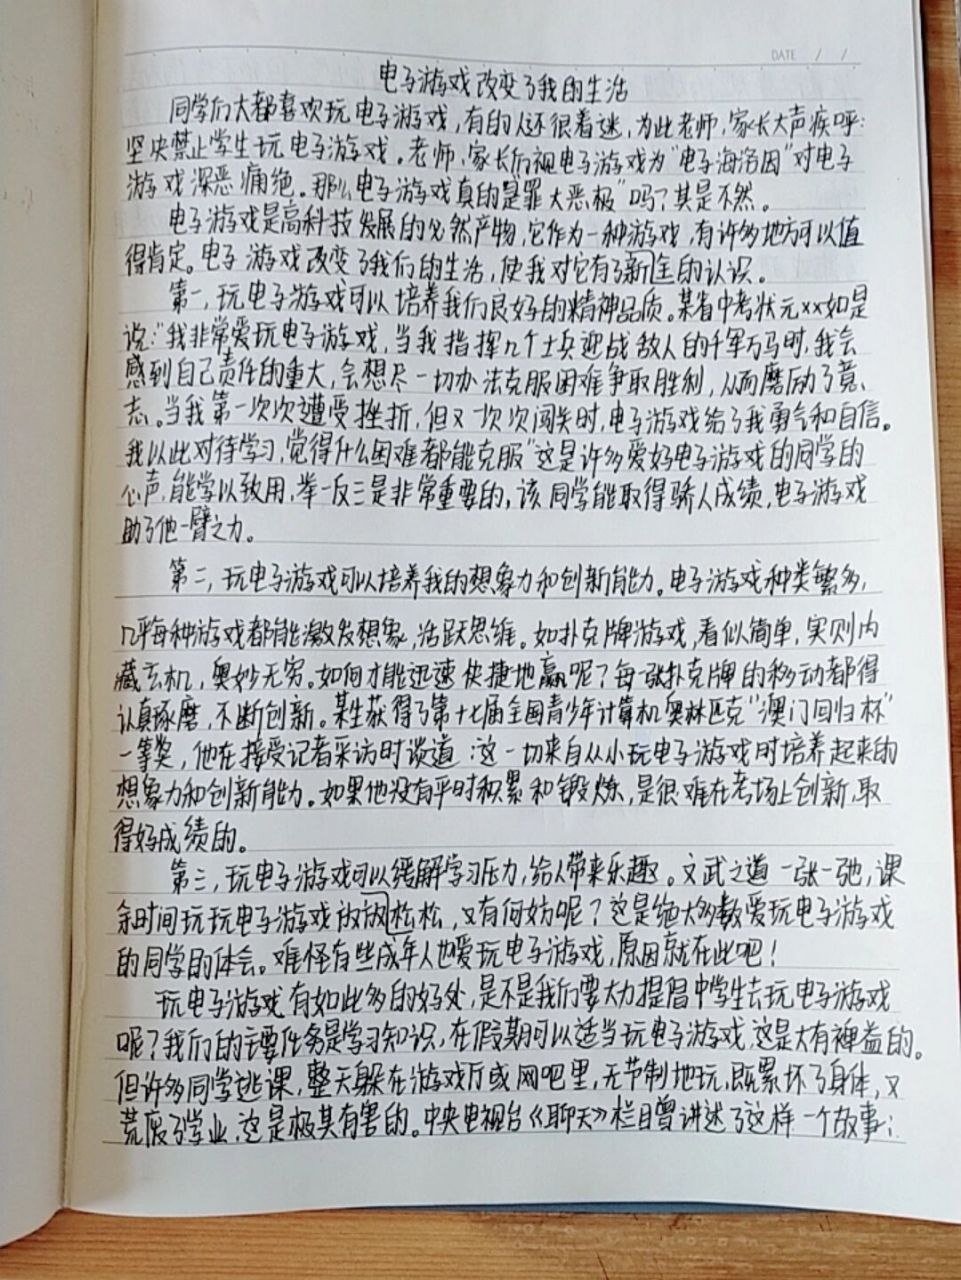 DATE / /
电子游戏改变了我的生活
同学们大都喜欢玩电子游戏,有的人还很着迷,为此老师,家长大声疾呼:
坚决禁止学生玩电子游戏。老师,家长们视电子游戏为"电子海洛因"对电子
游戏深恶痛绝。那么电子游戏真的是罪大恶极"吗?其是不然。
电子游戏是高科技发展的必然产物,它作为一种游戏,有许多地方可以值
得肯定。电子游戏改变了我们的生活,使我对它有了新的认识。
第一,玩电子游戏可以培养我们良好的精神品质。某省中考状元xx如是
说:"我非常爱玩电子游戏,当我指挥几个士兵迎战敌人的千军万马时,我会
感到自己责任的重大,会想尽一切办法克服困难争取胜利,从而磨励了意
志。当我第一次次遭受挫折,但又一次次闯关时,电子游戏给了我勇气和自信。
我以此对待学习,觉得什么困难都能克服"这是许多爱好电子游戏的同学的
心声,能学以致用,举一反三是非常重要的,该同学能取得骄人成绩,电子游戏
助了他一臂之力。
第二,玩电子游戏可以培养我的想象力和创新能力。电子游戏种类繁多,
几乎每种游戏都能激发想象,活跃思维。如扑克牌游戏,看似简单,实则内
藏玄机,奥妙无穷。如何才能迅速快捷地赢呢?每一张扑克牌的移动都得
认真琢磨,不断创新。某生获得了第十七届全国青少年计算机奥林匹克"澳门回归杯"
一等奖,他在接受记者采访时谈道:这一切来自从小玩电子游戏时培养起来的
想象力和创新能力。如果他没有平时积累和锻炼,是很难在考场上创新,取
得好成绩的。
第三,玩电子游戏可以缓解学习压力,给人带来乐趣。文武之道一张一弛,课
余时间玩玩电子游戏放放松松,又有何妨呢?这是绝大多数爱玩电子游戏
的同学的体会。难怪有些成年人也爱玩电子游戏,原因就在此吧!
玩电子游戏有如此多的好处,是不是我们要大力提倡中学生去玩电子游戏
呢?我们的主要任务是学习知识,在假期可以适当玩电子游戏,这是大有裨益的。
但许多同学逃课,整天躲在游戏厅或网吧里,无节制地玩,既累坏了身体,又
荒废了学业,这是极其有害的。中央电视台《聊天》栏目曾讲述了这样一个故事: